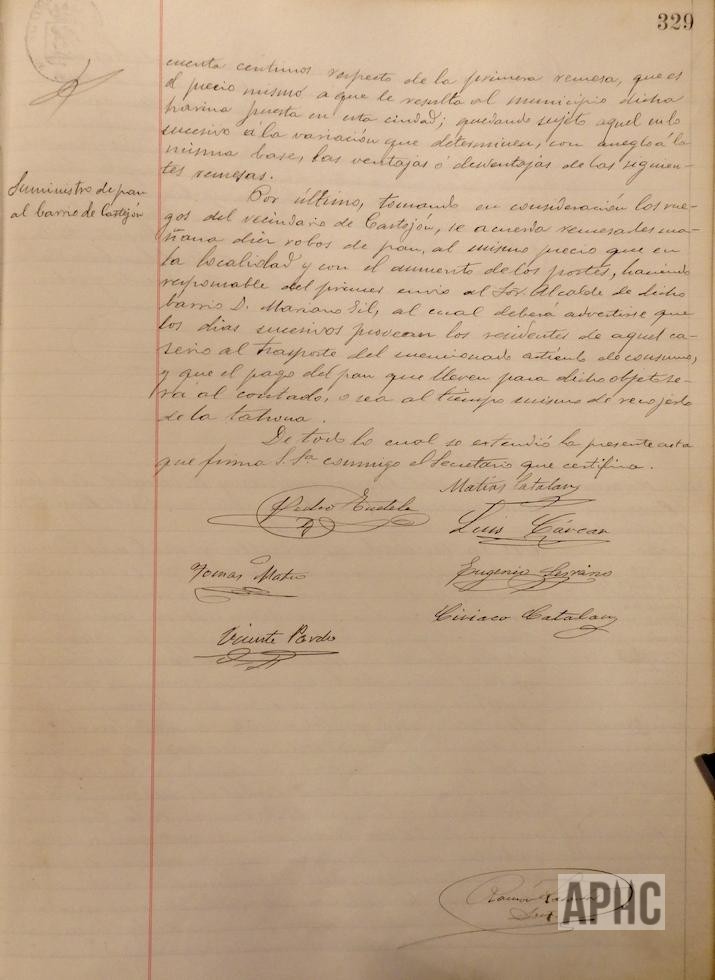 329
cuenta centimos respecto de la primera remesa, que es
el precio mismo a que le resulta al municipio dicha
harina puesta en esta ciudad; quedando sujeto aquel en lo
sucesivo á la variación que determinen, con arreglo á la
misma base, las ventajas ó desventajas de las siguien-
tes remesas.
Suministro de pan
al barrio de Castejón
Por último, tomando en consideración los rue-
gos del vecindario de Castejón, se acuerda remesarles ma-
ñana diez robos de pan, al mismo precio que en
la localidad y con el aumento de los portes, haciendo
responsable del primer envio al Sor. Alcalde de dicho
barrio D. Mariano Gil, al cual deberá advertirse que
los dias sucesivos provean los residentes de aquel ca-
serio al trasporte del mencionado artículo de consumo,
y que el pago del pan que lleven para dicho objeto se-
rá al contado, o sea al tiempo mismo de recojerlo
de la tahona.
De todo lo cual se extendió la presente acta
que firma S. Sa conmigo el Secretario que certifico.
Matías Catalan
Pedro Tudela
Luis Cárcar
Tomas Mateo
Eugenio Serrano
Ciriaco Catalan
Vicente Pardo
Ramón
APHC